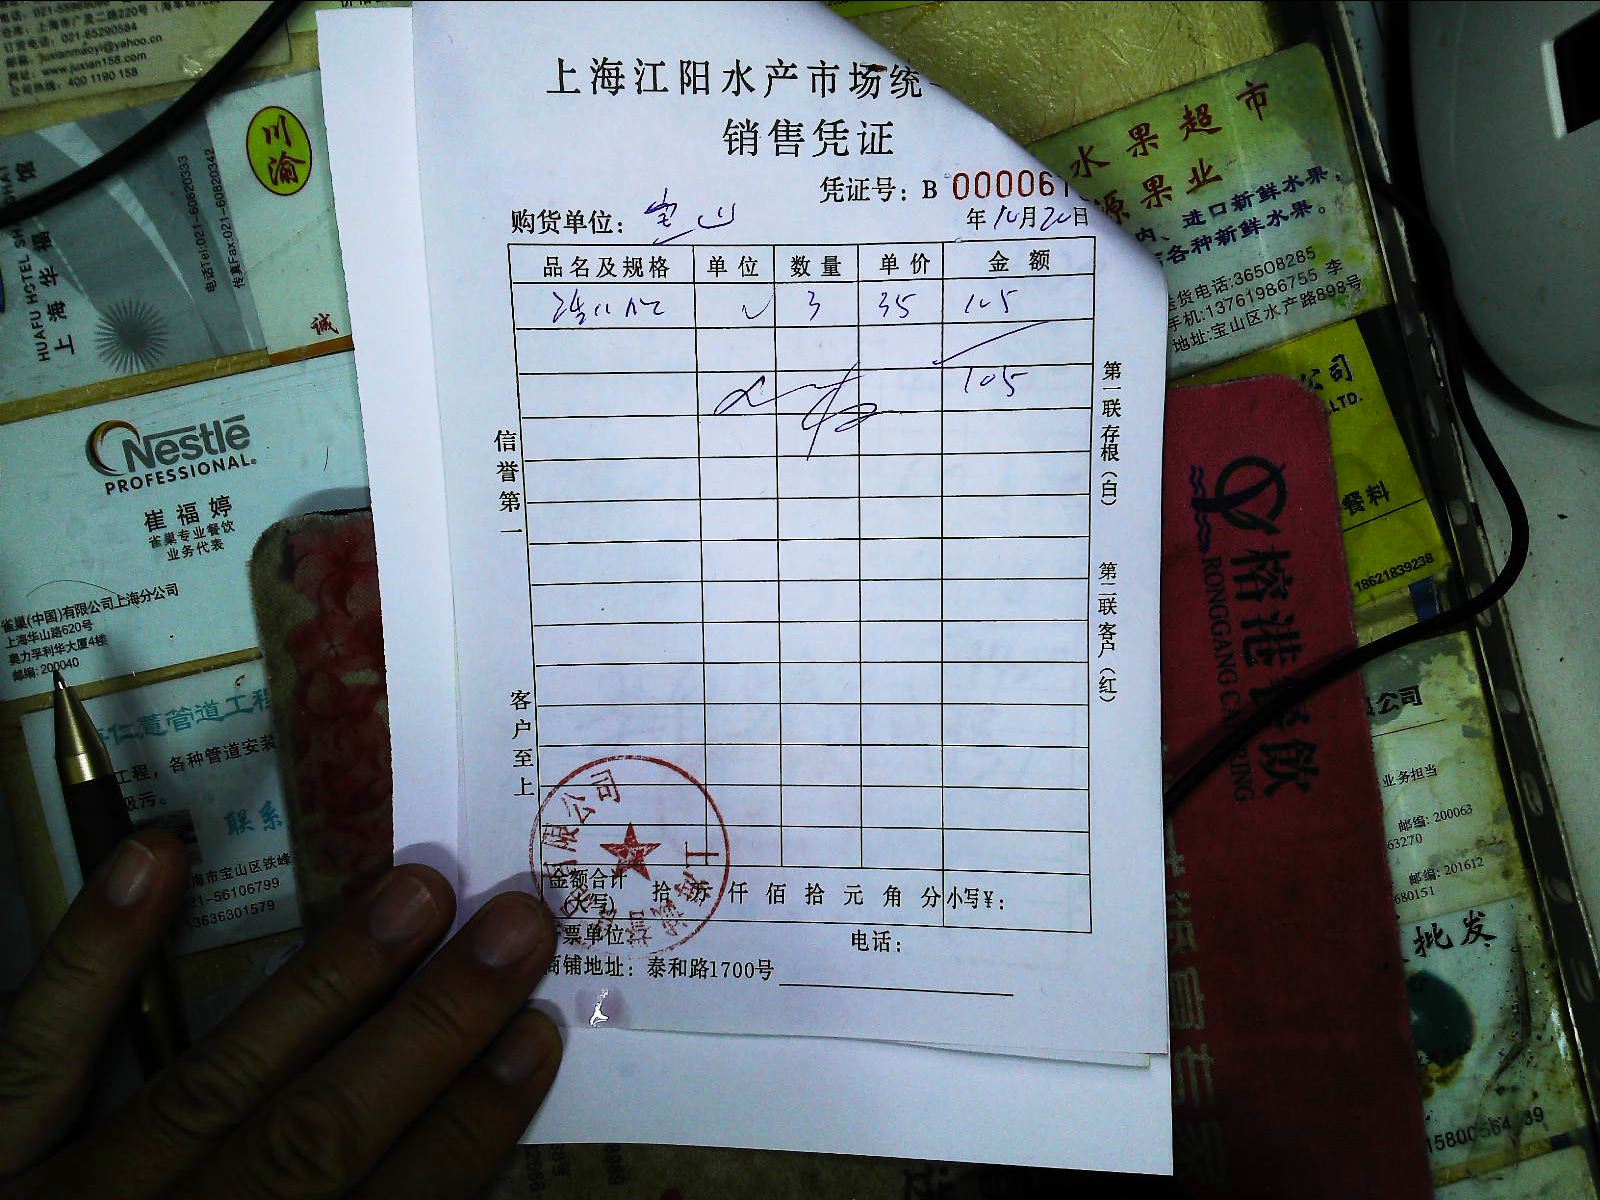 上海江阳水产市场统
销售凭证
凭证号：B 000061
购货单位：宝山
年10月20日
品名及规格 单位 数量 单价 金额
3 35 105
105
信誉第一
客户至上
第一联存根（白）
第二联客户（红）
金额合计
（大写）
拾 万 仟 佰 拾 元 角 分 小写¥：
票单位：
电话：
商铺地址：泰和路1700号
有限公司
上海
订货电话：021-65290584
邮箱：juxianmaoyi@yahoo.cn
网址：www.juxian158.com
公司热线：400 1190 158
川渝
诚
上海华福
电话Tel:021-60820333
传真Fax:021-60820342
Nestlé
PROFESSIONAL
崔福婷
雀巢专业餐饮
业务代表
雀巢（中国）有限公司上海分公司
上海华山路620号
奥力孚利华大厦4楼
邮编：200040
仁薏管道工程
工程，各种管道安装
吸污。
联系
海市宝山区铁峰
21-56106799
3636301579
水果超市
源果业
内、进口新鲜水果，
各种新鲜水果。
送货电话:36508285
手机:13761986755 李
地址:宝山区水产路898号
公司
LTD.
餐料
18621839238
榕港餐飲
RONGGANG CATERING
公司
业务担当
邮编：200063
63270
邮编：201612
680151
批发